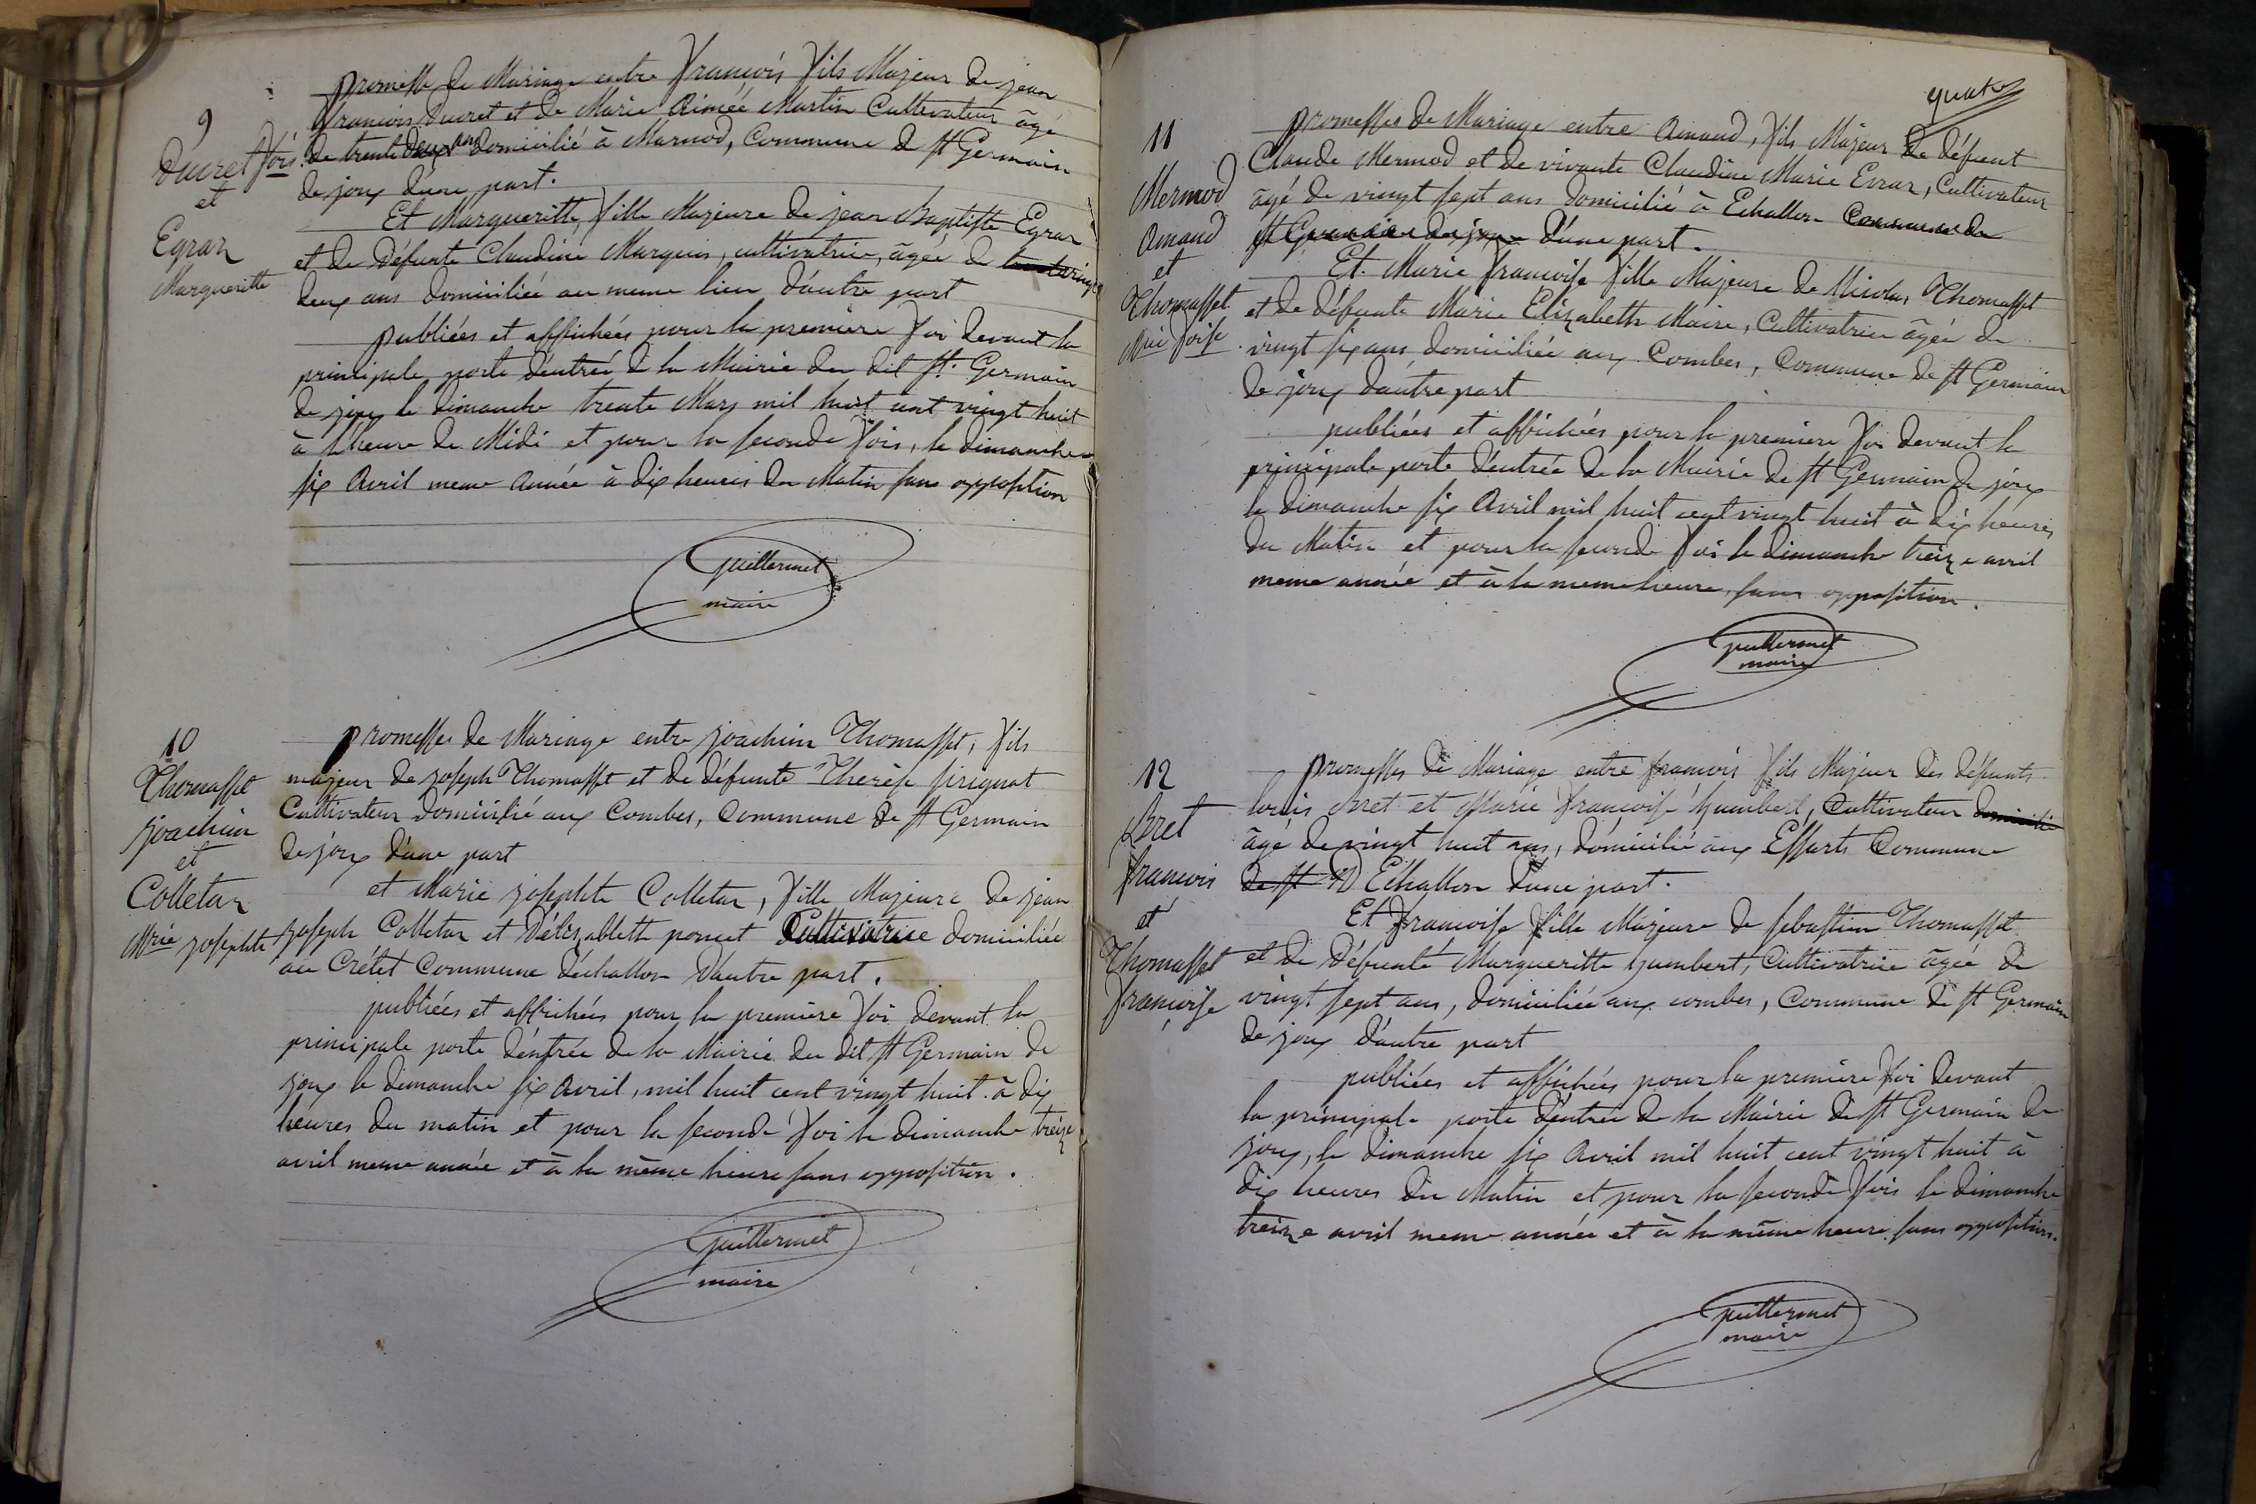 9
Ducret fois
et
Egraz
Margueritte
promesse de Mariage entre françois fils Majeur de jean
françois Ducret et de Marie Aimée Martin Cultivateur âgé
de trente deux ans domicilié à Marnod, Commune de st Germain
de joux d'une part.
Et Margueritte, fille Majeure de jean Baptiste Egraz
et de Défunte Claudine Marquis, cultivatrice, âgée de vingt
deux ans domiciliée au meme lieu d'autre part
publiées et affichées pour la premiere foi devant la
principale porte d'entrée de la Mairie du dit st Germain
de joux le dimanche trente Mars mil huit cent vingt huit
à l'heure de Midi et pour la seconde fois, le dimanche
six Avril meme Année à dix heures du Matin sans opposition
Guillermet
maire
10
Thomasset
joachim
et
Colletaz
Mrie josephte
promesses de Mariage entre joachim Thomasset, fils
majeur de joseph Thomasset et de défunte Therèse
Cultivateur domicilié aux Combes, Commune de st Germain
de joux d'une part
et Marie josephte Colletaz, fille Majeure de jean
joseph Colletaz et d'élisabeth poncet Cultivatrice domiciliée
au Crétet Commune d'échallon d'autre part.
publiées et affichées pour la premiere foi devant la
principale porte d'entrée de la Mairie du dit st Germain de
joux le dimanche six Avril, mil huit cent vingt huit à dix
heures du matin et pour la seconde foi le dimanche treize
avril meme année et à la même heure sans opposition.
Guillermet
maire
quatre
11
Mermod
Amand
et
Thomasset
Mrie foise
promesses de Mariage entre Amand, fils Majeur de défunt
Claude Mermod et de vivante Claudine Marie Evraz, Cultivateur
âgé de vingt sept ans domicilié à Echallon Commune de
st Germain de joux d'une part.
Et Marie françoise fille Majeure de Nicolas Thomasset
et de défunte Marie Elizabeth Maire, Cultivatrice âgée de
vingt six ans domiciliée aux Combes, Commune de st Germain
de joux d'autre part
publiées et affichées pour la premiere foi devant la
principale porte d'entrée de la Mairie de st Germain de joux
le dimanche six Avril mil huit cent vingt huit à dix heures
du Matin et pour la seconde foi le dimanche treize avril
meme année et à la meme heure, sans opposition.
Guillermet
maire
12
Bret
françois
et
Thomasset
françoise
promesses de Mariage entre françois fils Majeur des défunts
louis Bret et Marie françoise humbert, Cultivateur domicilié
âgé de vingt huit ans, domicilié aux Essarts Commune
de st D'Echallon d'une part.
Et françoise fille Majeure de sebastien Thomasset
et de Défunte Margueritte humbert, Cultivatrice âgée de
vingt sept ans, domiciliée aux combes, Commune de st Germain
de joux d'autre part
publiées et affichées pour la premiere foi devant
la principale porte d'entrée de la Mairie de st Germain de
joux, le dimanche six Avril mil huit cent vingt huit à
dix heures du Matin et pour la seconde fois le dimanche
treize avril meme année et à la même heure sans opposition.
Guillermet
maire